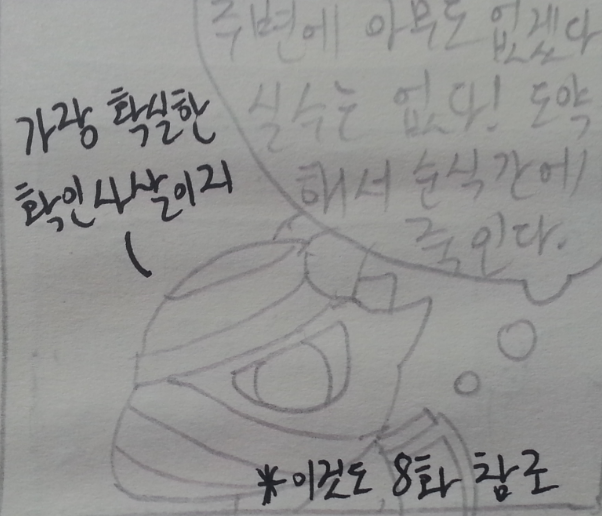 주변에 아무도 없겠다
실수는 없다! 도약
해서 순식간에
죽인다.
가장 확실한
확인사살이지
*이것도 8화 참조